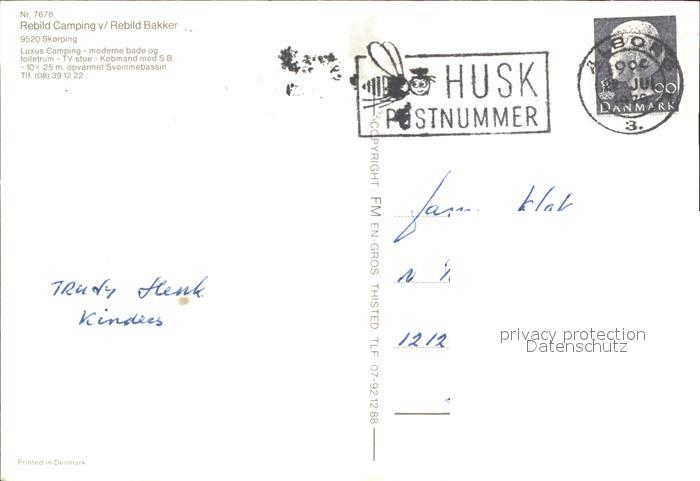 Nr. 7678
Rebild Camping v/ Rebild Bakker
9520 Skørping
Luxus Camping - moderne bade og
toiletrum - TV stue - Købmand med S.B.
- 10 × 25 m. opvarmet Svømmebassin
Tlf. (08) 39 12 22
HUSK
POSTNUMMER
ÅLBORG
90
DANMARK
3.
COPYRIGHT: FM EN-GROS, THISTED. TLF. 07-92 12 88
Fam. Klot
1212
Trudy Henk
Kinders
privacy protection
Datenschutz
Printed in Denmark